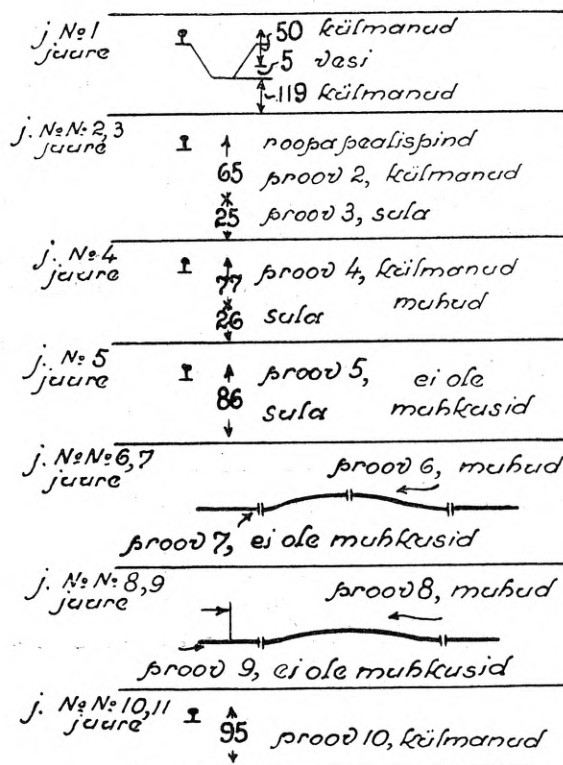 j. №1
jaure
50 külmanud
5 vesi
119 külmanud
j. №№ 2,3
jaure
roopapealispind
65 proov 2, külmanud
25 proov 3, sula
j. №4
jaure
77 proov 4, külmanud
muhud
26 sula
j. №5
jaure
proov 5, ei ole
86 sula muhkusid
j. №№6,7
jaure
proov 6, muhud
proov 7, ei ole muhkusid
j. №№ 8,9
jaure
proov 8, muhud
proov 9, ei ole muhkusid
j. №№ 10,11
jaure
95 proov 10, külmanud